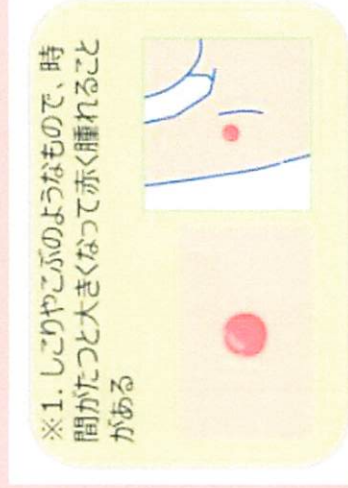 ※1. しこりやこぶのようなもので、時
間がたつと大きくなって赤く腫れること
がある